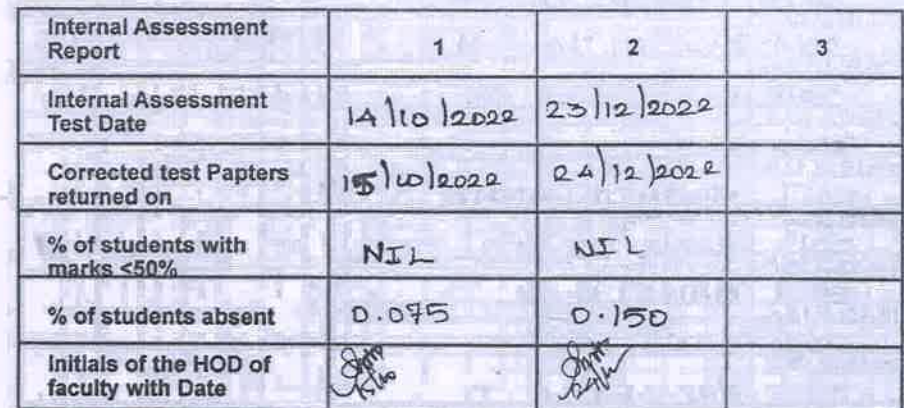 Internal Assessment
Report 1 2 3
Internal Assessment
Test Date 14/10/2022 23/12/2022
Corrected test Papters
returned on 15/10/2022 24/12/2022
% of students with
marks <50% NIL NIL
% of students absent 0.075 0.150
Initials of the HOD of
faculty with Date